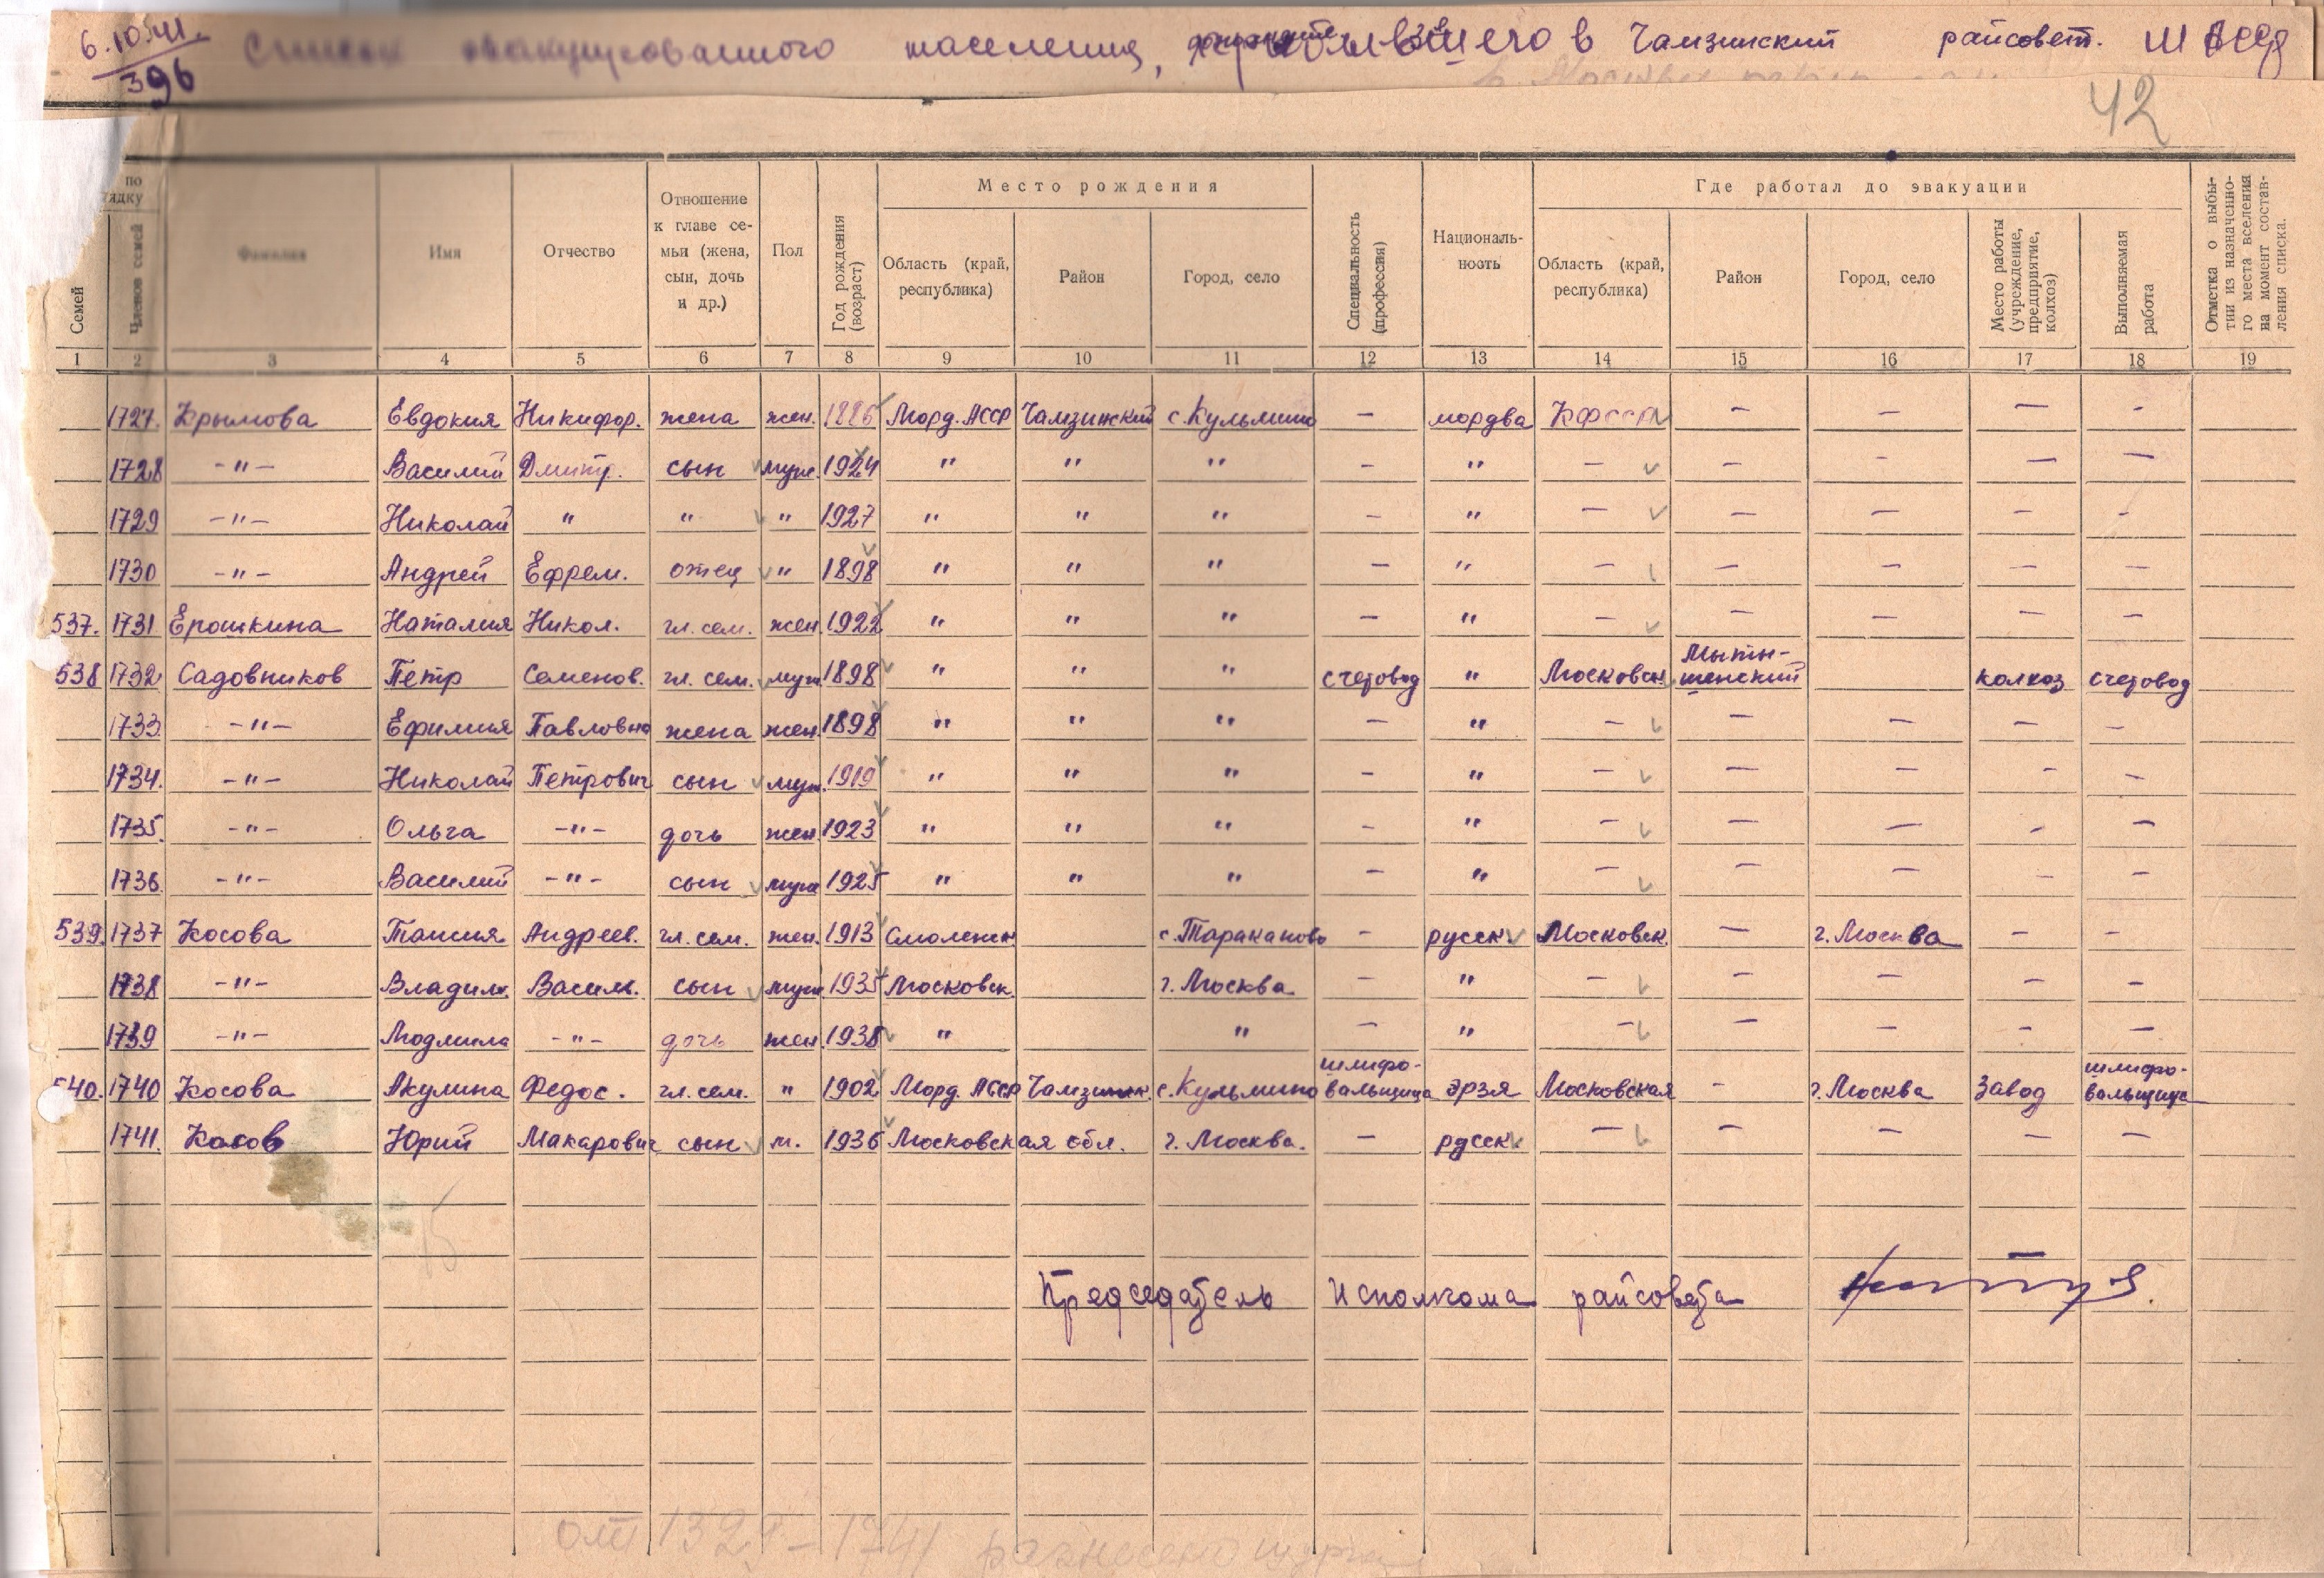 6.10.41.
396
Список эвакуированного населения, в Чамзинский райсовет.
42
по
рядку
Семей
Членов семей
Фамилия
Имя
Отчество
Отношение
к главе се-
мьи (жена,
сын, дочь
и др.)
Пол
Год рождения
(возраст)
Место рождения
Область (край,
республика)
Район
Город, село
Специальность
(профессия)
Националь-
ность
Где работал до эвакуации
Область (край,
республика)
Район
Город, село
Место работы
(учреждение,
предприятие,
колхоз)
Выполняемая
работа
Отметка о выбы-
тии из назначенно-
го места вселения
на момент состав-
ления списка.
1 2 3 4 5 6 7 8 9 10 11 12 13 14 15 16 17 18 19
1727. Крымова Евдокия Никифор. жена жен. 1886 Морд. АССР Чамзинский с. Кульмино – мордва КФССР – – – –
1728 –"– Василий Дмитр. сын муж. 1924 " " " – " – – – – –
1729 –"– Николай " " " 1927 " " " – " – – – – –
1730 –"– Андрей Ефрем. отец " 1898 " " " – " – – – – –
537. 1731 Ерошкина Наталия Никол. гл. сем. жен. 1922 " " " – " – – – – –
538 1732 Садовников Петр Семенов. гл. сем. муж 1898 " " " счетовод " Московск. Мыти-
щенский колхоз счетовод
1733. –"– Ефимия Павловна жена жен. 1898 " " " – " – – – – –
1734. –"– Николай Петрович сын муж. 1919 " " " – " – – – – –
1735. –"– Ольга –"– дочь жен. 1923 " " " – " – – – – –
1736. –"– Василий –"– сын муж 1925 " " " – " – – – – –
539. 1737 Косова Таисия Андреев. гл. сем. жен. 1913 Смоленск с. Тараканово – русск Московск. – г. Москва – –
1738 –"– Владим. Василь. сын муж 1935 Московск. г. Москва – " – – – – –
1739 –"– Людмила –"– дочь жен. 1938 " " – " – – – – –
540. 1740 Косова Акулина Федос. гл. сем. " 1902 Морд. АССР Чамзинск. с. Кульмино шлифо-
вальщица эрзя Московская – г. Москва завод шлифо-
вальщица
1741. Косов Юрий Макарович сын м. 1936 Московская обл. г. Москва. – русск – – – – –
Председатель Исполкома райсовета
от 1329 – 1741